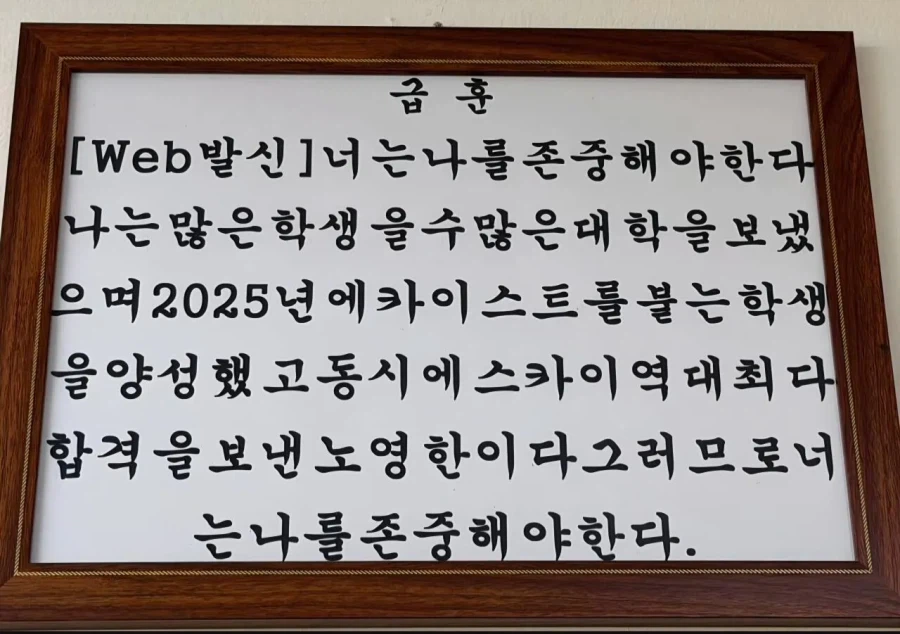 급 훈
[Web발신]너는나를존중해야한다
나는많은학생을수많은대학을보냈
으며2025년에카이스트를붙는학생
을양성했고동시에스카이역대최다
합격을보낸노영한이다그러므로너
는나를존중해야한다.